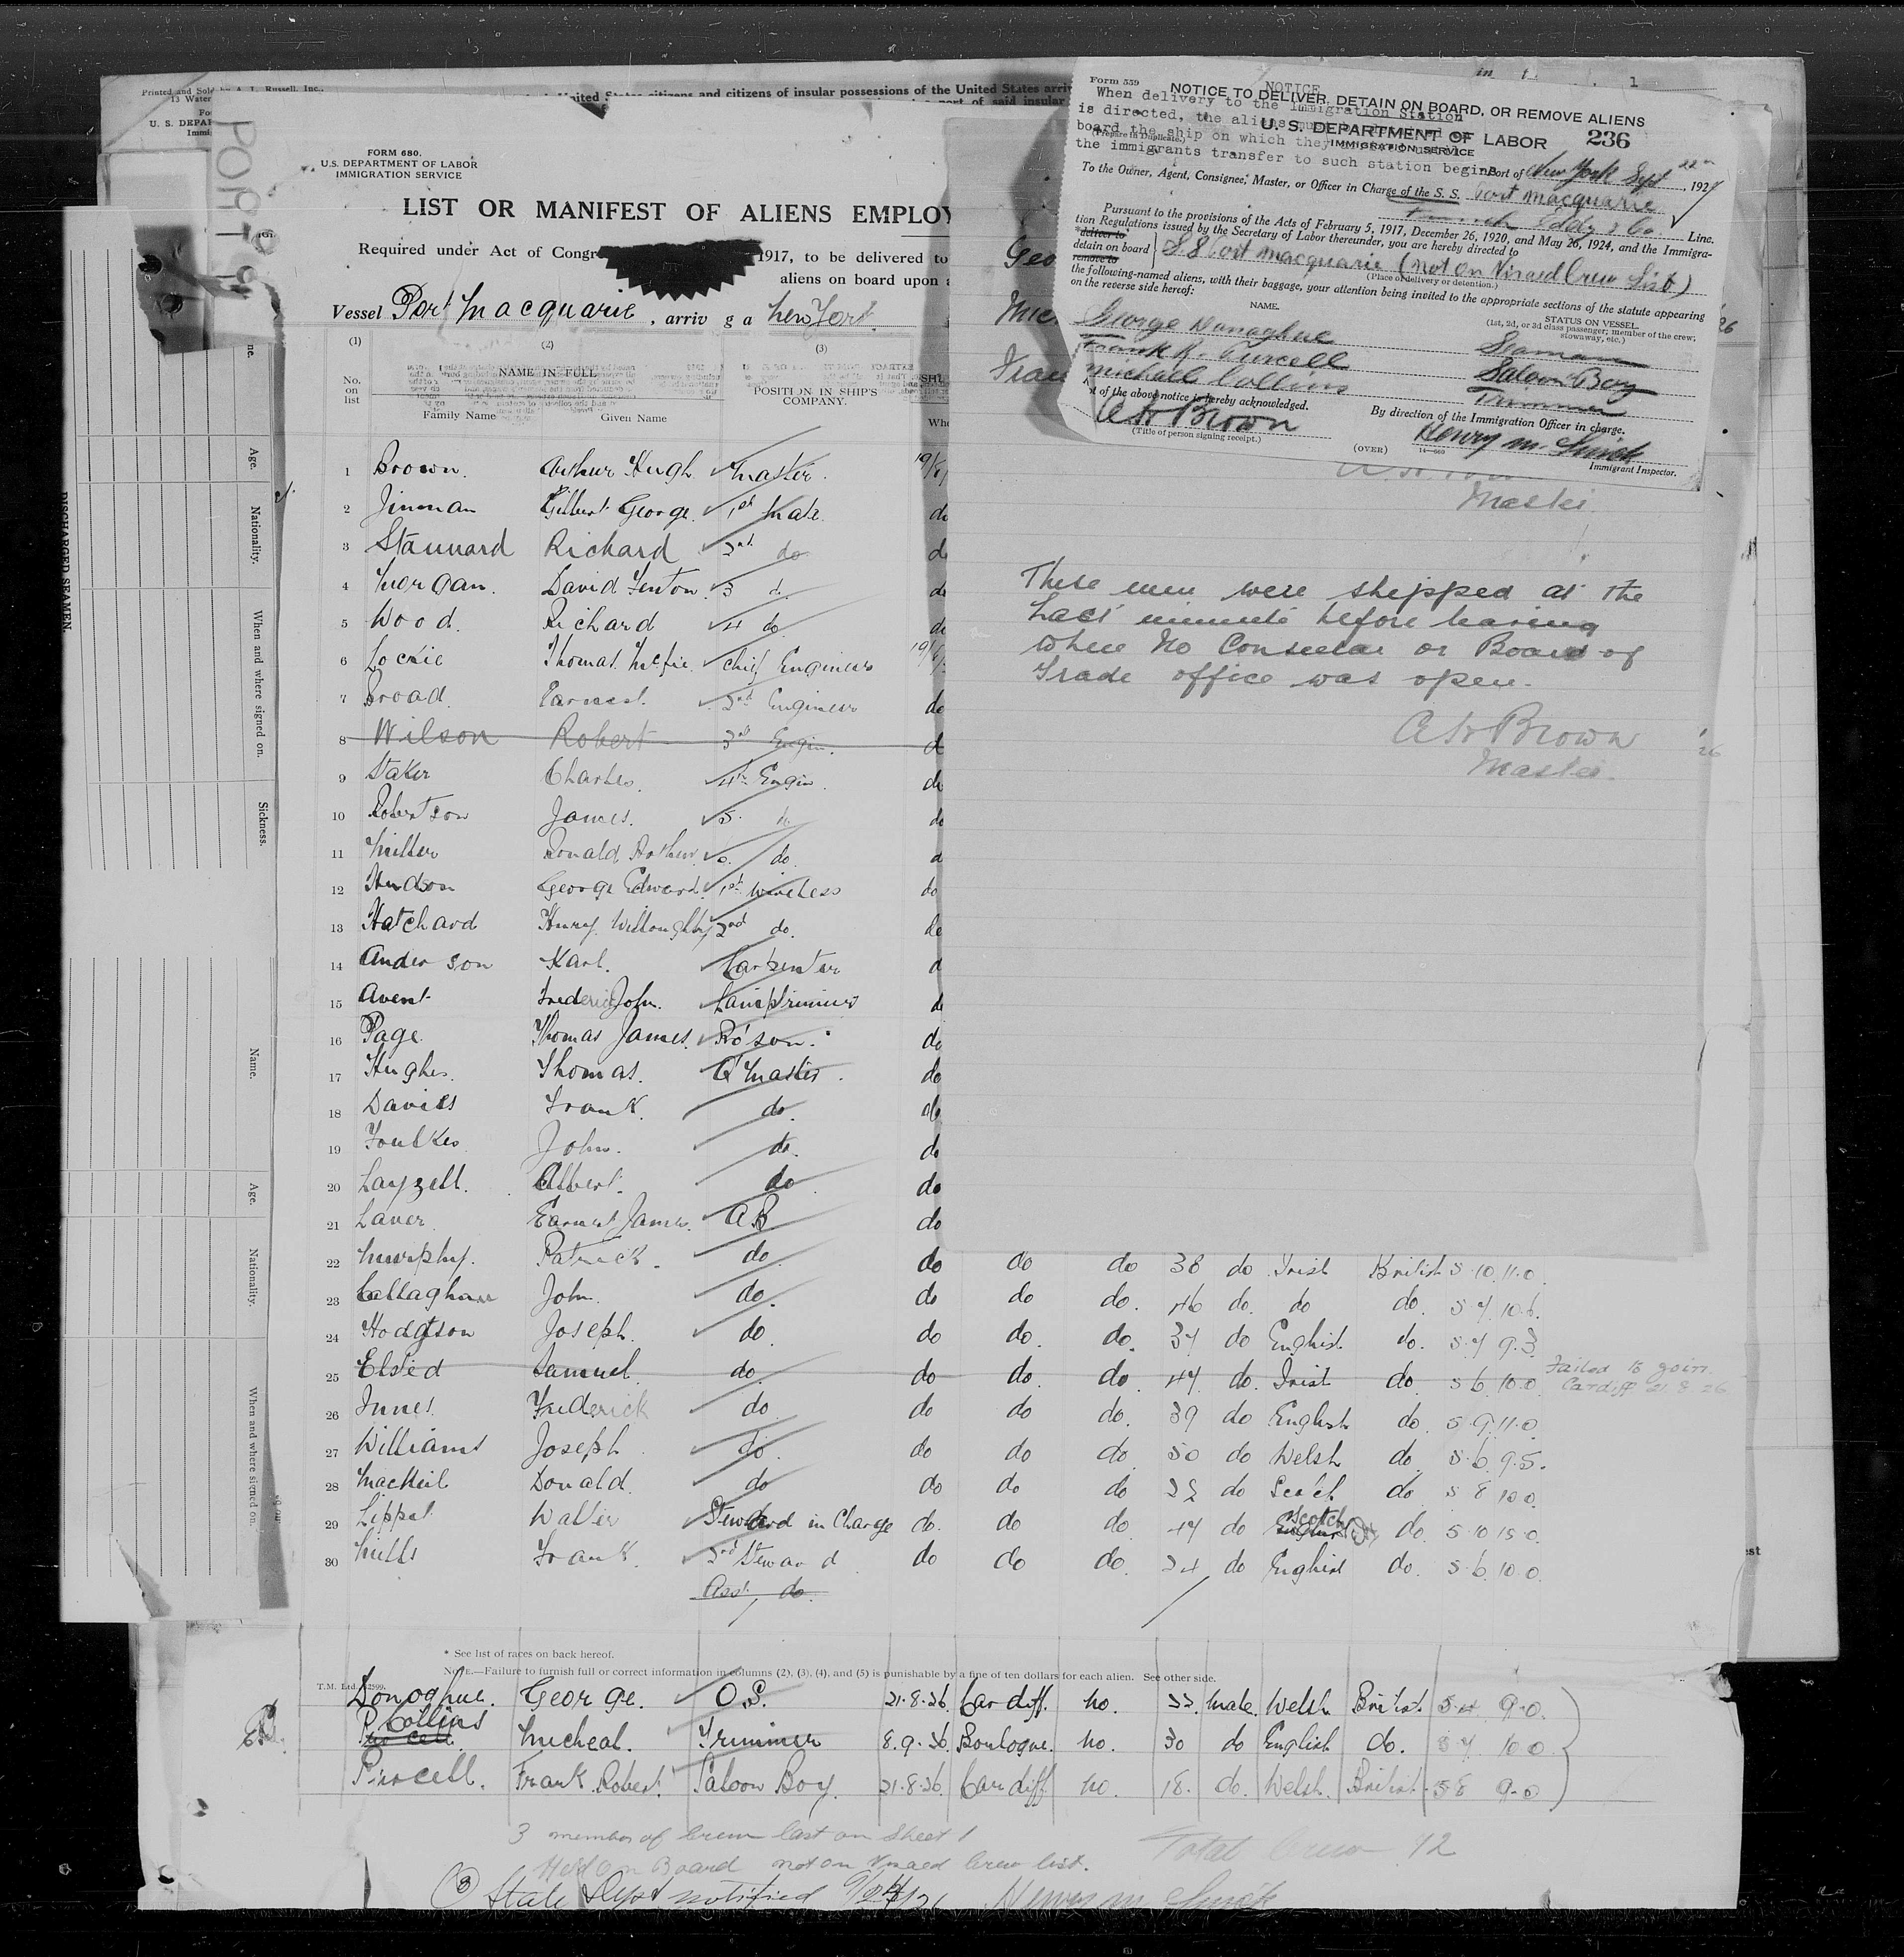 Printed and Sold by A. L. Russell, Inc.,
13 Water
U. S. DEPAR
Immi
PORT
United States citizens and citizens of insular possessions of the United States arriv
FORM 680.
U.S. DEPARTMENT OF LABOR
IMMIGRATION SERVICE
LIST OR MANIFEST OF ALIENS EMPLOY
Required under Act of Congr 1917, to be delivered to
aliens on board upon a
Vessel Port Macquarie, arriv g a New York.
(1) (2) (3)
No. on list
NAME IN FULL
Family Name Given Name
POSITION IN SHIP'S COMPANY.
Whe
1 Brown. Arthur Hugh Master.
2 Jinman Gilbert George. 1st Mate
3 Stannard Richard 2nd do
4 Morgan. David Fenton. 3 d.
5 Wood. Richard 4 do
6 Lockie Thomas Chief Engineer
7 Broad. Earnest. 2nd Engineer do
8 Wilson Robert 3rd Engin. d
9 Staker Charles. 4th Engin. do
10 Robertson James. 5. do
11 Miller Ronald Arthur. 6. do.
12 Hudson George Edward. 1st Wireless do
13 Hatchard Henry Willoughby 2nd do. do
14 Anderson Karl. Carpenter d
15 Avent Frederic John. Lamptrimmer d
16 Page. Thomas James. Bo'son. do
17 Hughes. Thomas. Q Master. do
18 Davies Frank. do. do
19 Foulkes John. do. do
20 Layzell. Albert. do do
21 Laver Earnest James. AB do
22 Murphy. Patrick. do do do do 38 do Irish British 5.10 11.0
23 Callaghan John. do. do do do. 46 do. do do. 5.7 10.6.
24 Hodgson Joseph. do do do. do. 37 do English do. 5.7 9.3
25 Elsted Samuel. do. do do. do. 47 do. Irish do. 5.6 10.0 Failed to join Cardiff 21.8.26
26 Innes. Frederick do do do do. 39 do English do. 5.9 11.0
27 Williams Joseph do. do do do 50 do Welsh do. 5.6. 9.5.
28 MacNeil Donald. do do do do do Scotch do 5 8 10 0.
29 Lippat Walter Steward in Charge do. do do 47 do Scotch do. 5.10 15.0.
30 Mills Frank. 2nd Steward do do do. 24 do English do. 5.6. 10.0.
Asst. do.
* See list of races on back hereof.
NOTE.—Failure to furnish full or correct information in columns (2), (3), (4), and (5) is punishable by a fine of ten dollars for each alien. See other side.
Donoghue. George. O.S. 21.8.26 Cardiff. No. 22. Male. Welsh British 5.4 9.0.
Collins Micheal. Trimmer 8.9.26 Boulogne. No. 30 do English do. 5 7 10 0
Purcell. Frank Robert Saloon Boy. 21.8.26 Cardiff No. 18. do. Welsh. British 5 8 9-0
3 members of Crew last on Sheet 1
Held on Board not on Visaed Crew list.
Total Crew 12
(3) State Dept notified 9/24/26 Henry M. Smick
Form 559
NOTICE
When delivery to the Immigration Station
is directed, the aliens
board the ship on which they
the immigrants transfer to such station begins
NOTICE TO DELIVER, DETAIN ON BOARD, OR REMOVE ALIENS
(Prepare in Duplicate.)
U. S. DEPARTMENT OF LABOR
IMMIGRATION SERVICE
236
Port of New York Sept 22, 192
To the Owner, Agent, Consignee, Master, or Officer in Charge of the S. S. Port Macquarie
Line.
Pursuant to the provisions of the Acts of February 5, 1917, December 26, 1920, and May 26, 1924, and the Immigra-
tion Regulations issued by the Secretary of Labor thereunder, you are hereby directed to
*deliver to
detain on board
remove to
S S Port Macquarie (not on Visaed Crew List)
(Place of delivery or detention.)
the following-named aliens, with their baggage, your attention being invited to the appropriate sections of the statute appearing
on the reverse side hereof:
NAME. STATUS ON VESSEL.
(1st, 2d, or 3d class passenger; member of the crew; stowaway, etc.)
George Donaghue Seaman
Frank R. Purcell Saloon Boy
Michael Collins Trimmer
of the above notice is hereby acknowledged.
A H Brown
(Title of person signing receipt.)
By direction of the Immigration Officer in charge.
Henry M. Smick
Immigrant Inspector.
(OVER)
14—660
Geo
Mic
Fran
Master
These men were shipped at the
Last minute before leaving
where No Consular or Board of
Trade office was open.
A H Brown
Master.
DISCHARGED SEAMEN.
Age.
Nationality.
When and where signed on.
Sickness.
Name.
Age.
Nationality.
When and where signed on.